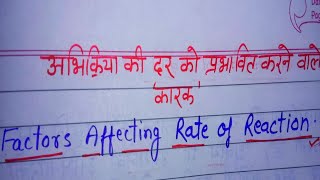 अभिक्रिया की दर को प्रभावित करने वाले
कारक
Factors Affecting Rate of Reaction.